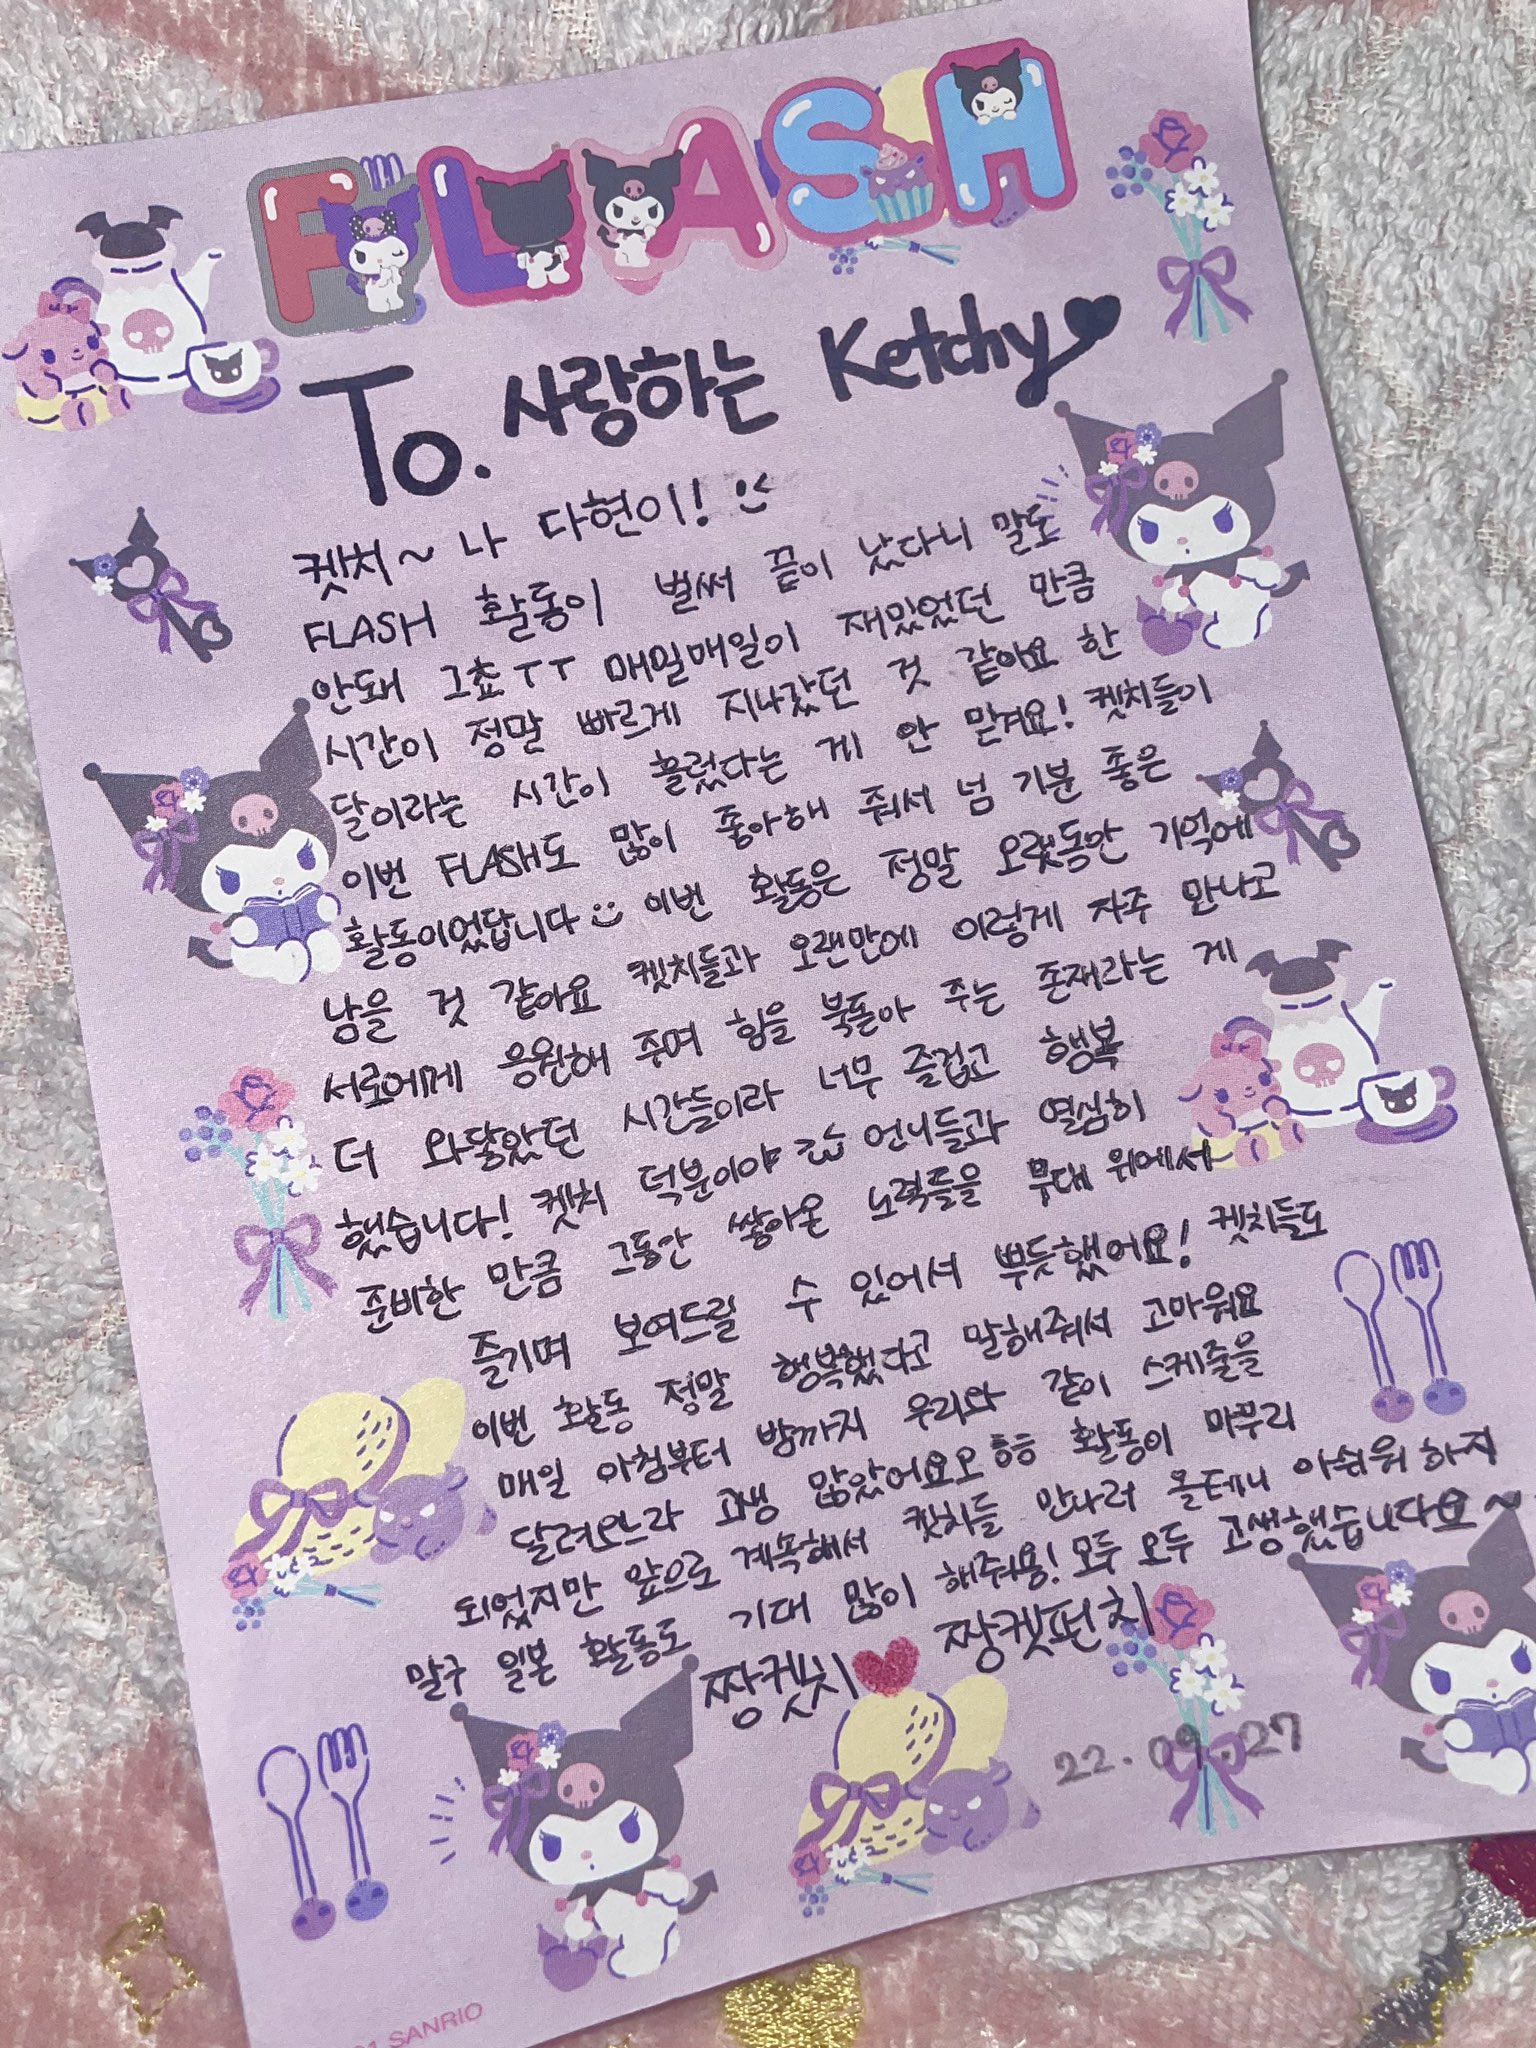 FLASH
To. 사랑하는 Ketchy
켓치~ 나 다현이!
FLASH 활동이 벌써 끝이 났다니 말도
안돼 그쵸ㅜㅜ 매일매일이 재밌었던 만큼
시간이 정말 빠르게 지나갔던 것 같아요 한
달이라는 시간이 흘렀다는 게 안 믿겨요! 켓치들이
이번 FLASH도 많이 좋아해 줘서 넘 기분 좋은
활동이었답니다 이번 활동은 정말 오랫동안 기억에
남을 것 같아요 켓치들과 오랜만에 이렇게 자주 만나고
서로에게 응원해 주며 힘을 북돋아 주는 존재라는 게
더 와닿았던 시간들이라 너무 즐겁고 행복
했습니다! 켓치 덕분이야 언니들과 열심히
준비한 만큼 그동안 쌓아온 노력들을 무대 위에서
즐기며 보여드릴 수 있어서 뿌듯했어요! 켓치들도
이번 활동 정말 행복했다고 말해줘서 고마워요
매일 아침부터 밤까지 우리와 같이 스케줄을
달려오느라 고생 많았어요오 흐흐 활동이 마무리
되었지만 앞으로 계속해서 켓치들 만나러 올테니 아쉬워하지
말구 일본 활동도 기대 많이 해줘용! 모두 모두 고생했습니다요~
짱켓치 짱켓펀치
22.09.27
SANRIO